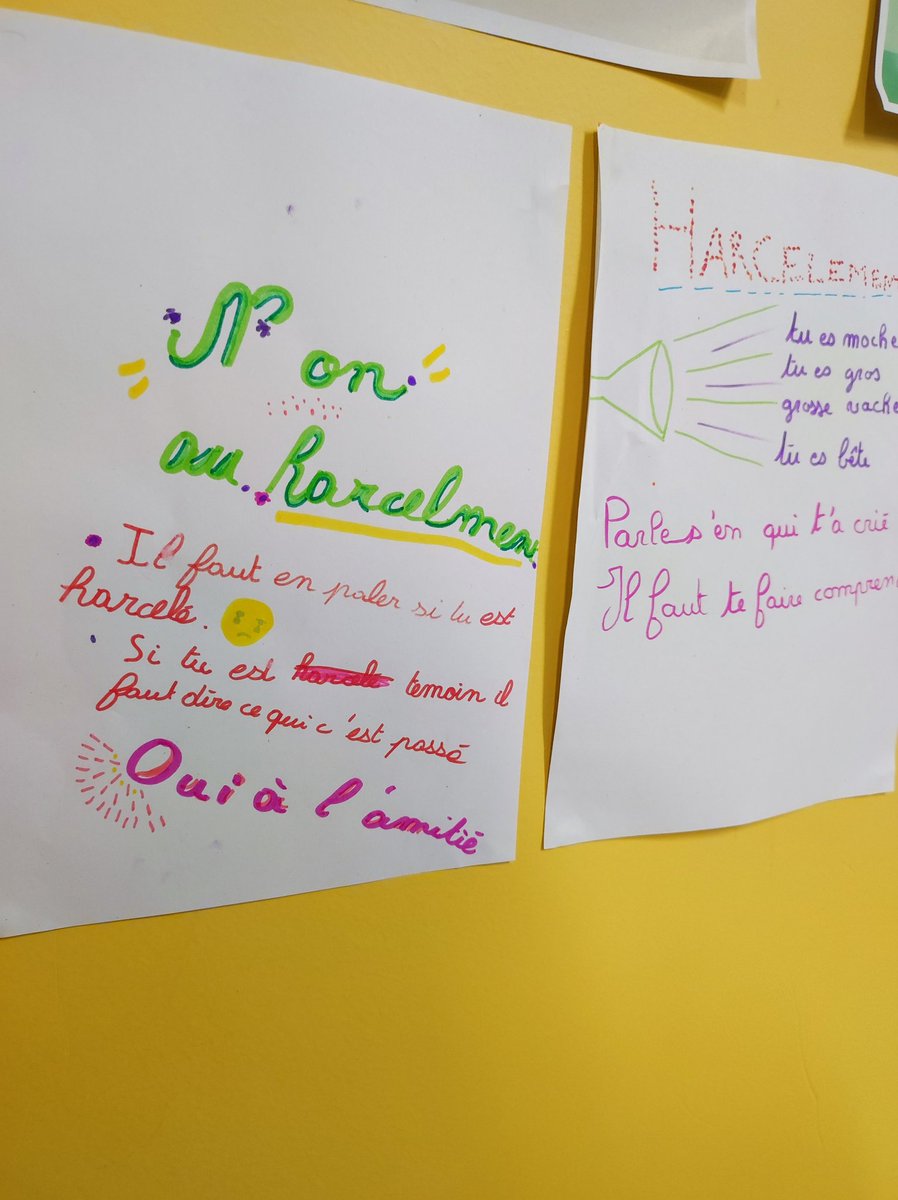 Non
au harcelment
Il faut en paler si tu est
harcelé.
Si tu est temoin il
faut dire ce qui c'est passé
Oui à l'amitié
HARCELEMEN
tu es moche
tu es gros
grosse vache
tu es bête
Parle s'en qui t'a crié
Il faut te faire compren